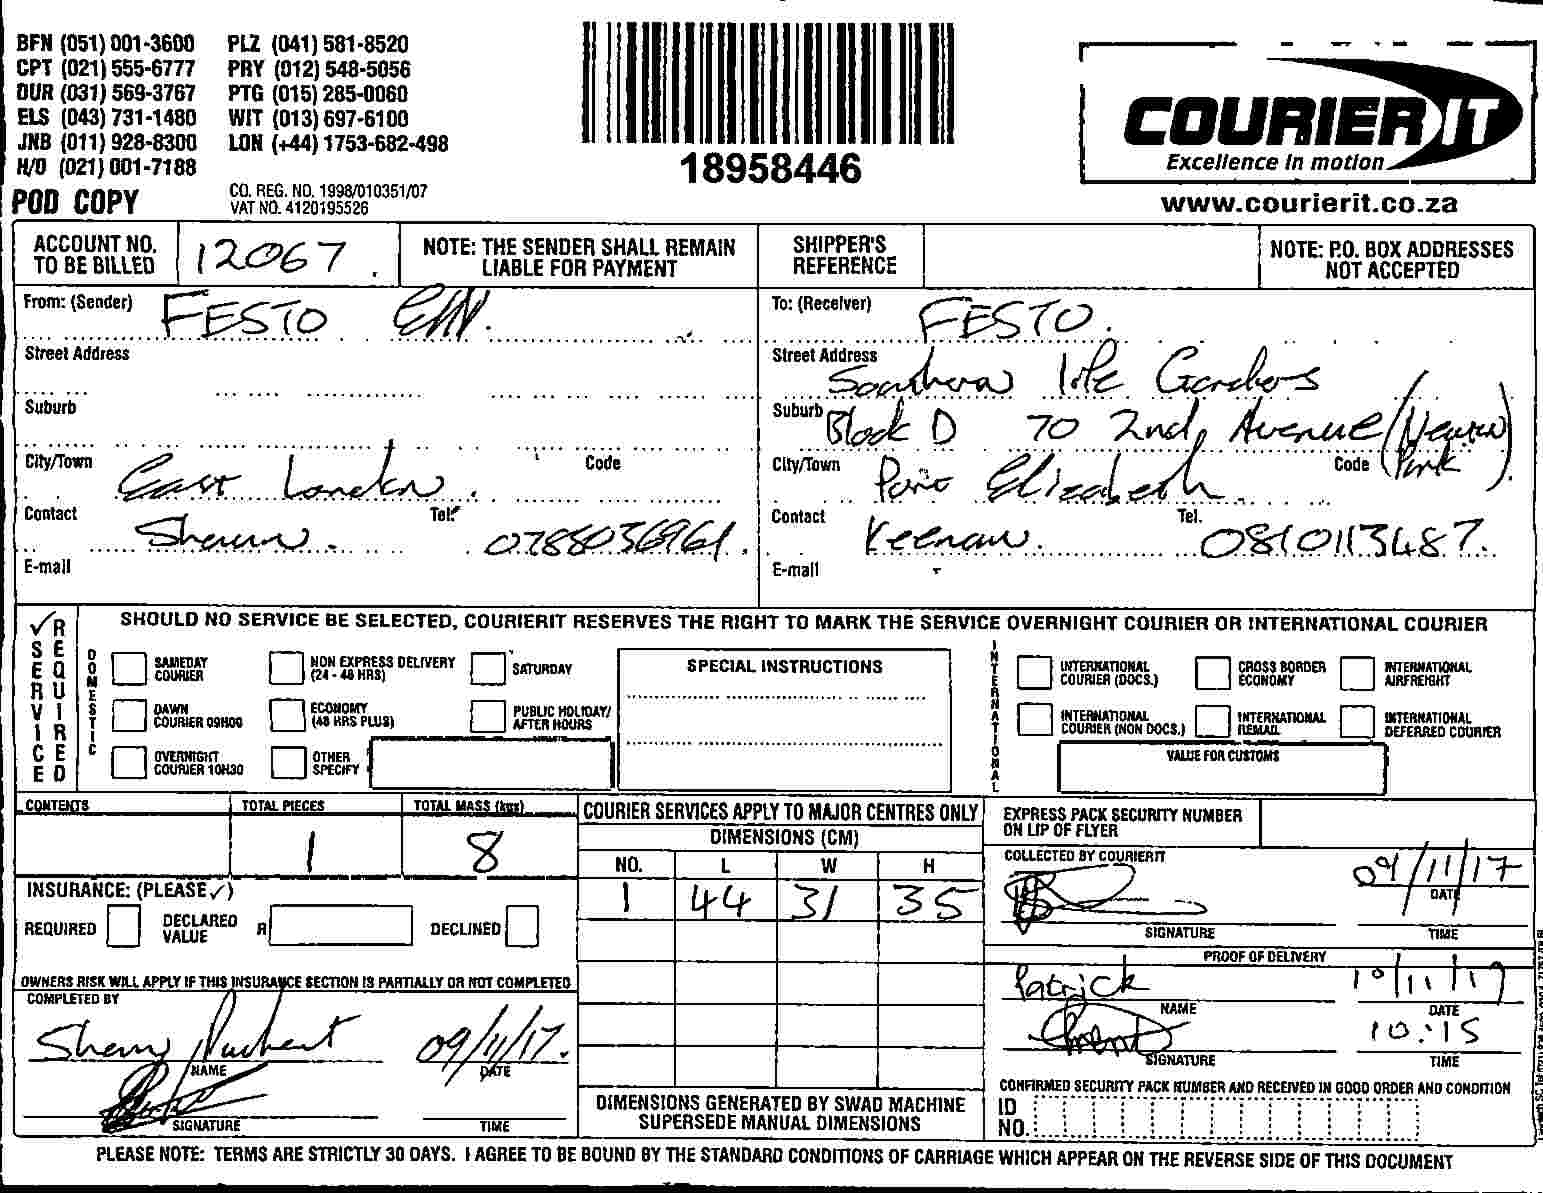 BFN (051) 001-3600 PLZ (041) 581-8520
CPT (021) 555-6777 PRY (012) 548-5056
DUR (031) 569-3767 PTG (015) 285-0060
ELS (043) 731-1480 WIT (013) 697-6100
JNB (011) 928-8300 LON (+44) 1753-682-498
H/O (021) 001-7188
POD COPY
CO. REG. NO. 1998/010351/07
VAT NO. 4120195526
18958446
COURIERIT
Excellence in motion
www.courierit.co.za
ACCOUNT NO. TO BE BILLED 12067
NOTE: THE SENDER SHALL REMAIN LIABLE FOR PAYMENT
SHIPPER'S REFERENCE
NOTE: P.O. BOX ADDRESSES NOT ACCEPTED
From: (Sender) FESTO
Street Address
Suburb
City/Town East London Code
Contact Tel: 0788036961
E-mail
To: (Receiver) FESTO
Street Address Southern life Gardens
Suburb Block D 70 2nd Avenue (Newton Park)
City/Town Port Elizabeth Code
Contact Keenan Tel. 0810113487
E-mail
✓ SERVICE REQUIRED
SHOULD NO SERVICE BE SELECTED, COURIERIT RESERVES THE RIGHT TO MARK THE SERVICE OVERNIGHT COURIER OR INTERNATIONAL COURIER
DOMESTIC
SAMEDAY COURIER
NON EXPRESS DELIVERY (24 - 48 HRS)
SATURDAY
DAWN COURIER 09H00
ECONOMY (48 HRS PLUS)
PUBLIC HOLIDAY/ AFTER HOURS
OVERNIGHT COURIER 10H30
OTHER SPECIFY
SPECIAL INSTRUCTIONS
INTERNATIONAL
INTERNATIONAL COURIER (DOCS.)
CROSS BORDER ECONOMY
INTERNATIONAL AIRFREIGHT
INTERNATIONAL COURIER (NON DOCS.)
INTERNATIONAL REMAIL
INTERNATIONAL DEFERRED COURIER
VALUE FOR CUSTOMS
CONTENTS
TOTAL PIECES 1
TOTAL MASS (kgs) 8
INSURANCE: (PLEASE ✓)
REQUIRED
DECLARED VALUE R
DECLINED
OWNERS RISK WILL APPLY IF THIS INSURANCE SECTION IS PARTIALLY OR NOT COMPLETED
COMPLETED BY
09/11/17.
NAME DATE
SIGNATURE TIME
COURIER SERVICES APPLY TO MAJOR CENTRES ONLY
DIMENSIONS (CM)
NO. L W H
1 44 31 35
DIMENSIONS GENERATED BY SWAD MACHINE SUPERSEDE MANUAL DIMENSIONS
EXPRESS PACK SECURITY NUMBER ON LIP OF FLYER
COLLECTED BY COURIERIT
09/11/17
DATE
SIGNATURE TIME
PROOF OF DELIVERY
Patrick 10/11/17
NAME DATE
10:15
SIGNATURE TIME
CONFIRMED SECURITY PACK NUMBER AND RECEIVED IN GOOD ORDER AND CONDITION
ID NO.
PLEASE NOTE: TERMS ARE STRICTLY 30 DAYS. I AGREE TO BE BOUND BY THE STANDARD CONDITIONS OF CARRIAGE WHICH APPEAR ON THE REVERSE SIDE OF THIS DOCUMENT